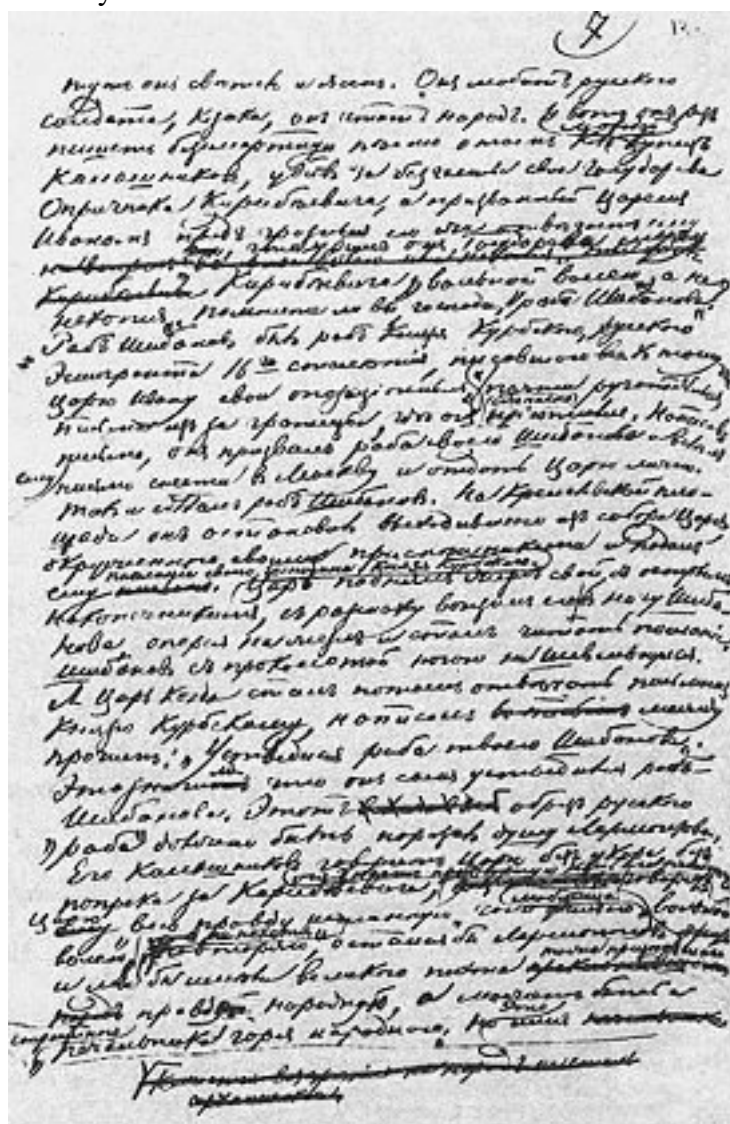 7
тутъ онъ святѣе и яснѣе. Онъ любитъ русскаго
солдата, казака, онъ чтитъ народъ. И вотъ онъ разъ
пишетъ безсмертную пѣсню о томъ какъ молодой купецъ
Калашниковъ, убивъ за безчестье свое Государева
Опричника Кирибѣевича, и призванный Царемъ
Иваномъ предъ грозныя его очи отвѣчаетъ ему
что убилъ онъ Государева слугу
Кирибѣевича „вольной волею, а не
нехотя". Помните ли вы, господа, „раба Шибанова"?
Рабъ Шибановъ былъ рабъ Князя Курбскаго, русскаго
Эмигранта 16го столѣтія, писавшаго все къ тому же
Царю Ивану свои оппозиціонныя и почти ругательныя
письма изъ за границы, гдѣ онъ безопасно пріютился. Написавъ
письмо, онъ призвалъ раба своего Шибанова и велѣлъ
ему письмо снести въ Москву и отдать Царю лично.
Такъ и сдѣлалъ рабъ Шибановъ. На Кремлевской пло-
щади онъ остановилъ выходившаго изъ собора Царя,
окруженнаго своими приспѣшниками и подалъ
ему посланіе своего господина, Князя Курбскаго. Царь поднялъ жезлъ свой съ острымъ
наконечникомъ, съ размаху вонзилъ его въ ногу Шиба-
нова, оперся на жезлъ и сталъ читать посланіе.
Шибановъ съ проколотой ногою не шевельнулся.
А Царь когда сталъ потомъ отвѣчать письмомъ
Князю Курбскому, написалъ между
прочимъ: „Устыдися раба твоего Шибанова".
Это значило что онъ самъ устыдился раба
Шибанова. Этотъ образъ русскаго
„раба" долженъ былъ поразить душу Лермонтова.
Его Калашниковъ говоритъ Царю безъ укора, безъ
попрека за Кирибѣевича, говоритъ
Царю всю правду истинную, что убилъ любимца вольной
волею Повторяю, остался бы Лермонтовъ жить
и мы бы имѣли великаго поэта тоже признавшаго
правду народную, а можетъ быть и
истиннаго печальника горя народнаго.